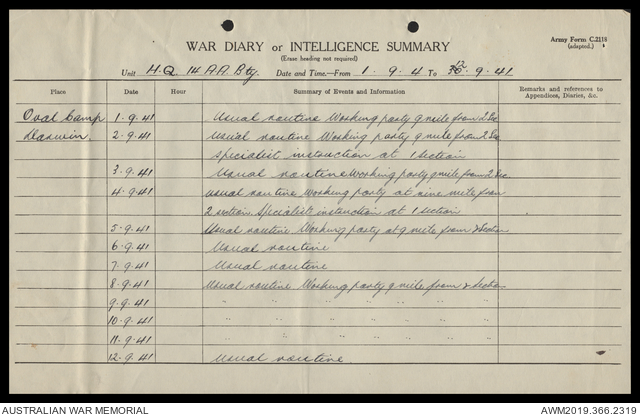 Army Form C.2118
(adapted.)
WAR DIARY or INTELLIGENCE SUMMARY
(Erase heading not required)
Unit H.Q. 14 A.A. Bty. Date and Time—From 1 . 9 . 4 To 12 . 9 . 41
Place Date Hour Summary of Events and Information Remarks and references to Appendices, Diaries, &c.
Oval Camp 1.9.41 Usual routine Working party 9 mile from 2 Sec
Darwin. 2.9.41 Usual routine Working party 9 mile from 2 Sec
specialist instruction at 1 section
3.9.41 Usual routine Working party 9 mile from 2 Sec
4.9.41 usual routine Working party at nine mile from
2 section. Specialist instruction at 1 section
5.9.41 Usual routine Working party at 9 mile from 2 Section
6.9.41 Usual routine
7.9.41 Usual routine
8.9.41 Usual routine Working party 9 mile from 2 Section
9.9.41 " " " " "
10.9.41 " " " " "
11.9.41 " " " " "
12.9.41 Usual routine.
AUSTRALIAN WAR MEMORIAL AWM2019.366.2319